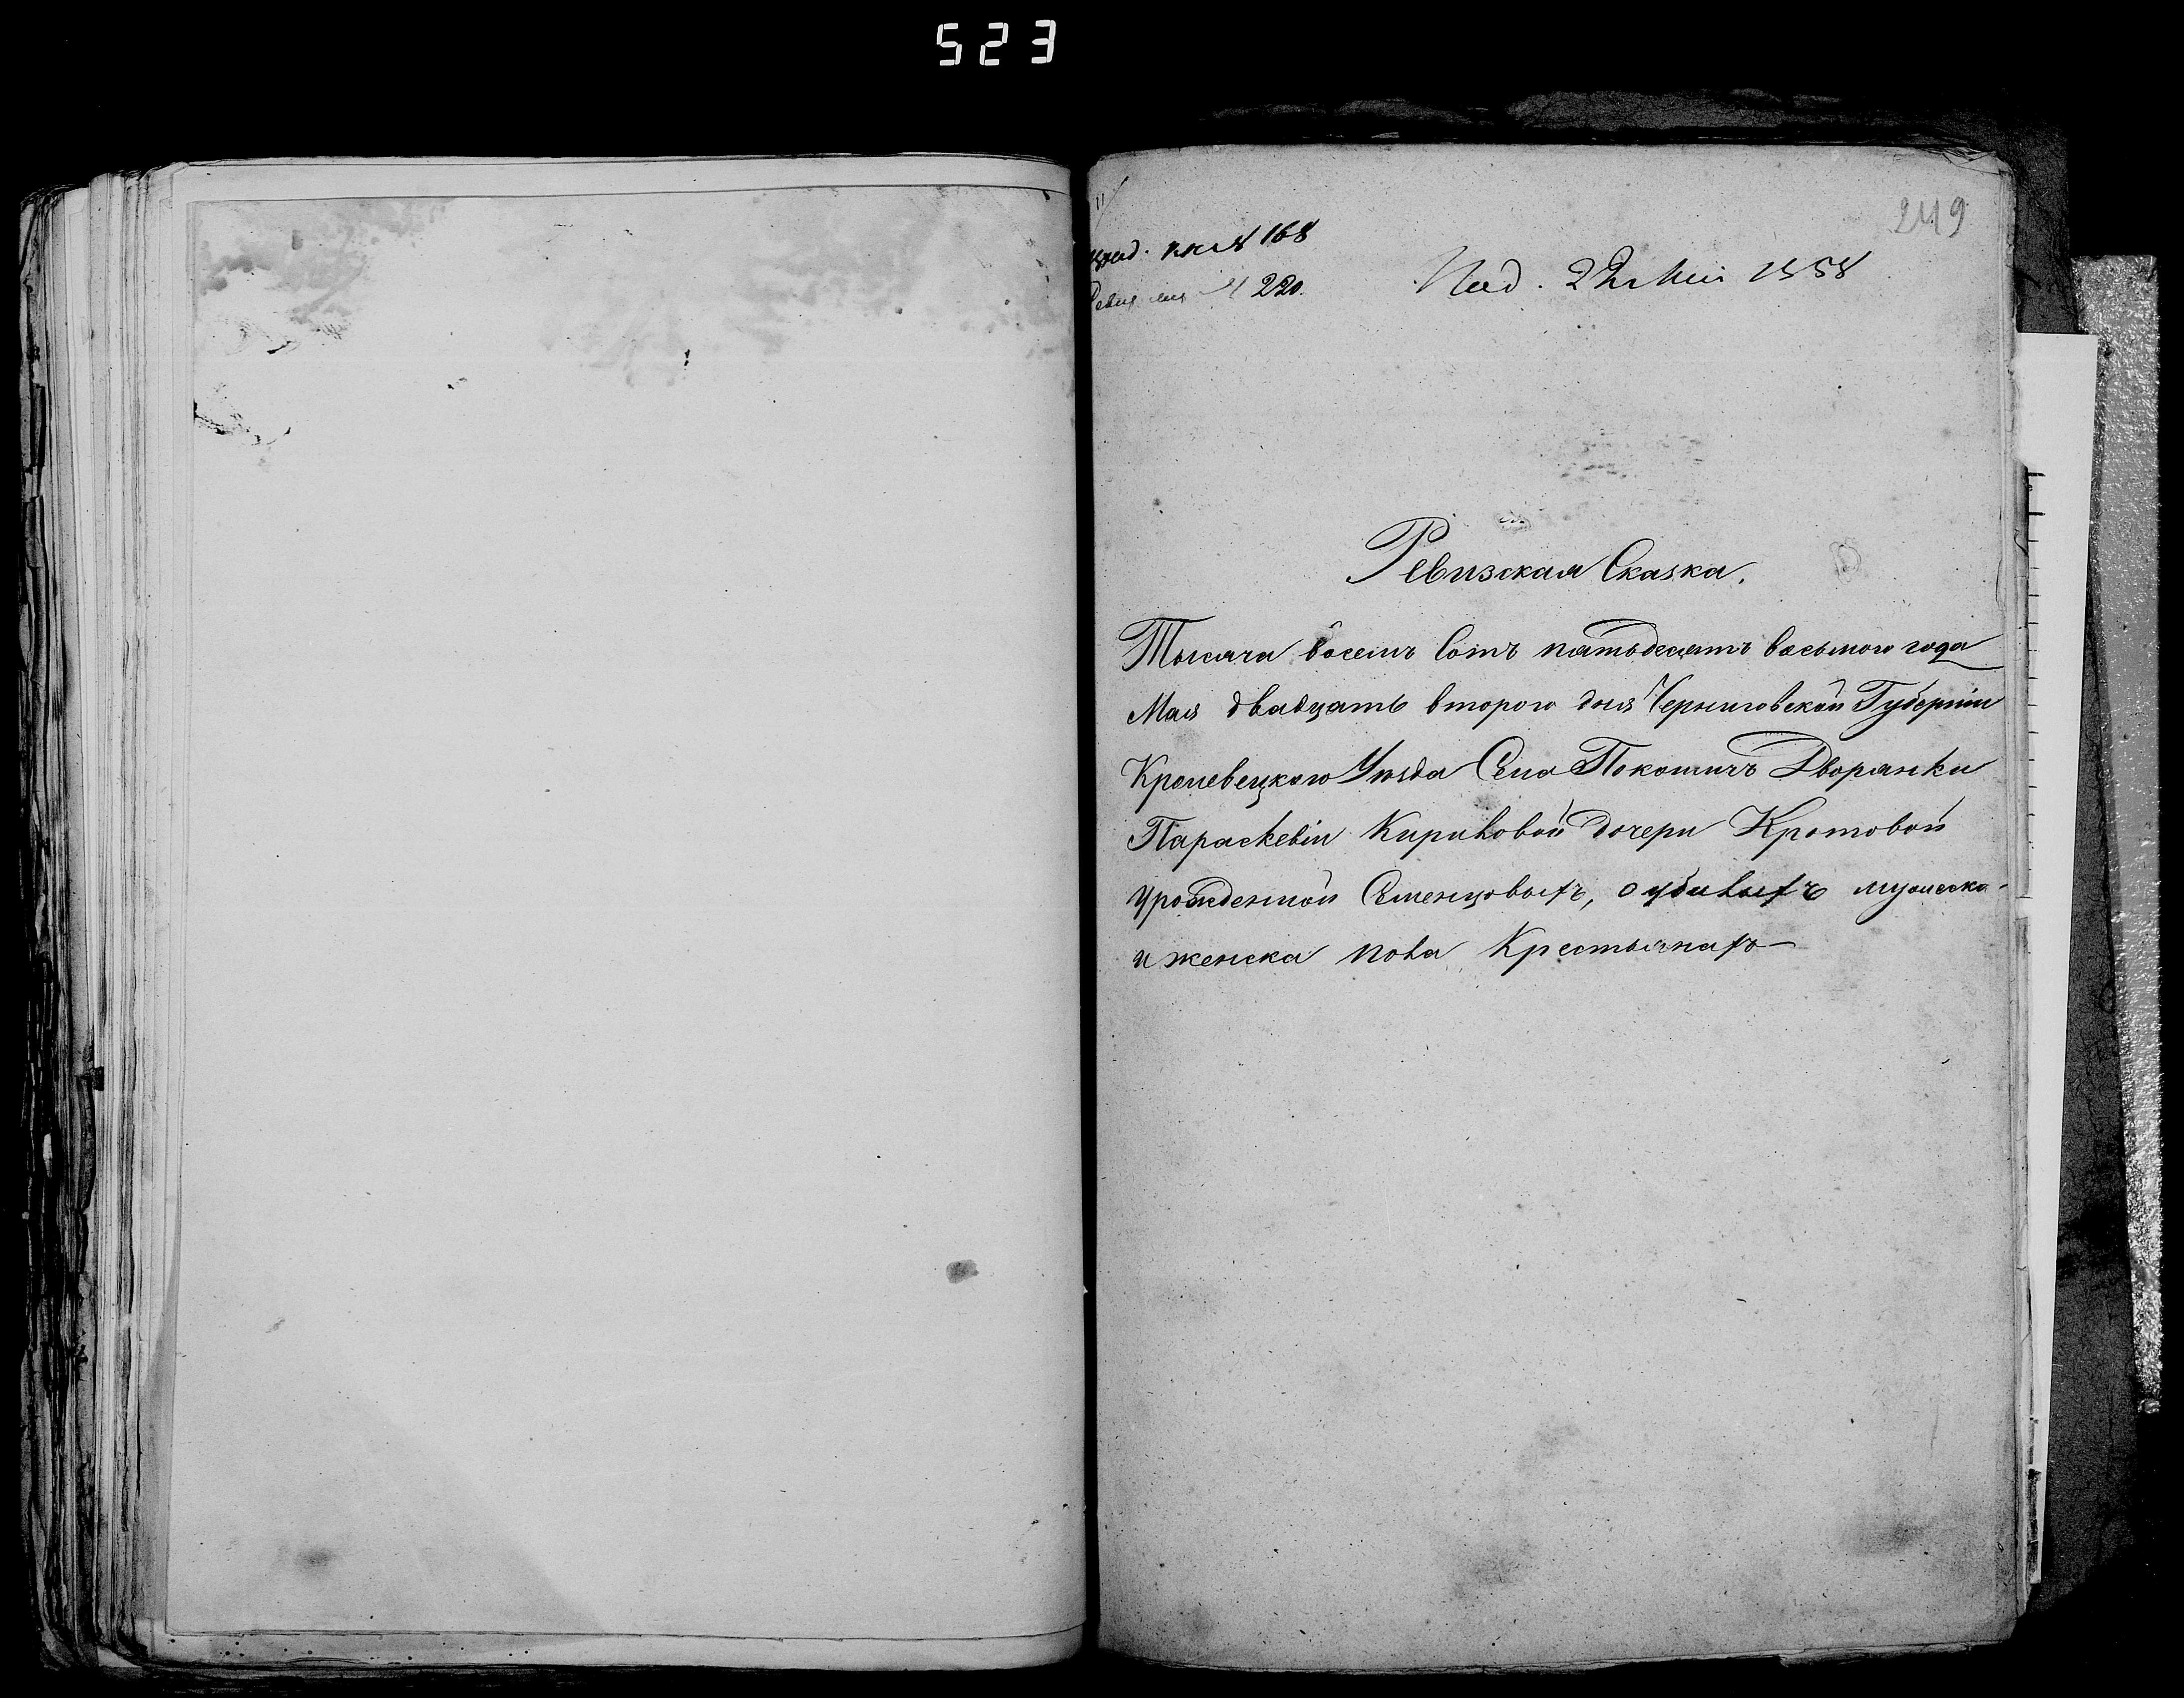 523
249
168
220.
Под. 22 Мая 1858
Ревизская Сказка.
Тысяча восемъ Сотъ пятьдесятъ восьмого года
Мая двадцать второго дня Черниговской Губерніи
Кролевецкого Уѣзда Села Покошичъ Дворянки
Параскевіи Кириловой дочери Кротовой
Урожденной Семенцовыхъ, о убылыхъ мужеска
и женска пола Крестьянахъ—